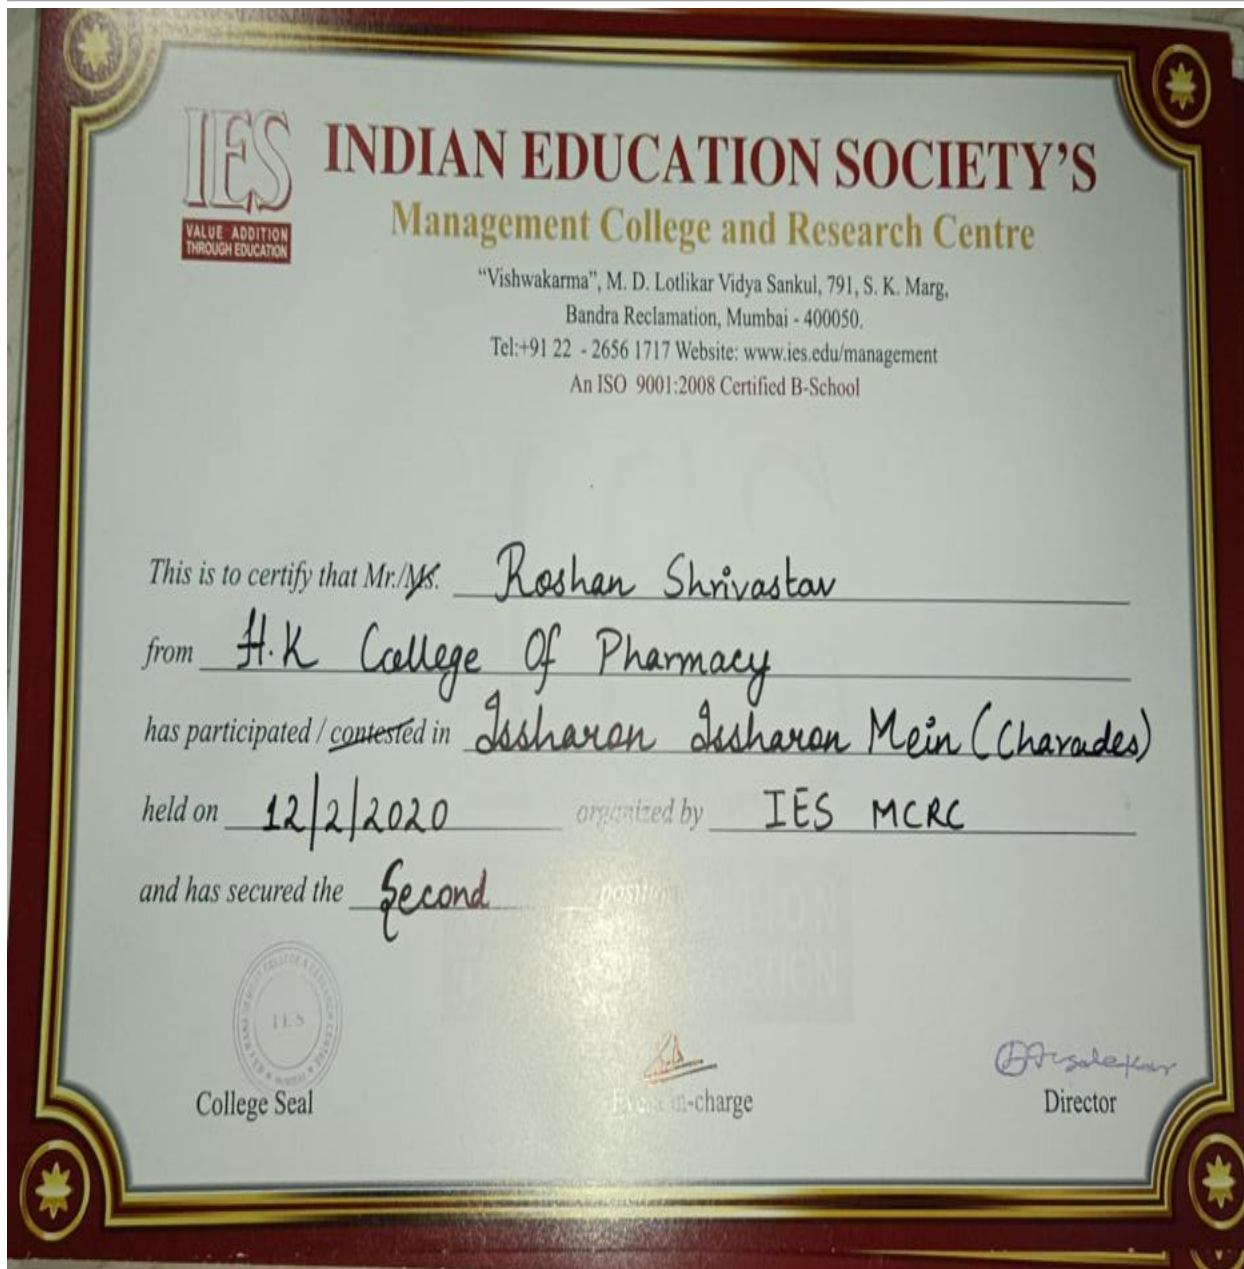 IES
VALUE ADDITION
THROUGH EDUCATION
INDIAN EDUCATION SOCIETY'S
Management College and Research Centre
“Vishwakarma”, M. D. Lotlikar Vidya Sankul, 791, S. K. Marg,
Bandra Reclamation, Mumbai - 400050.
Tel:+91 22 - 2656 1717 Website: www.ies.edu/management
An ISO 9001:2008 Certified B-School
This is to certify that Mr./Ms. Roshan Shrivastav
from H.K College Of Pharmacy
has participated / contested in Issharon Issharon Mein (Charades)
held on 12/2/2020 organized by IES MCRC
and has secured the Second position
IES
College Seal
Event in-charge
Director